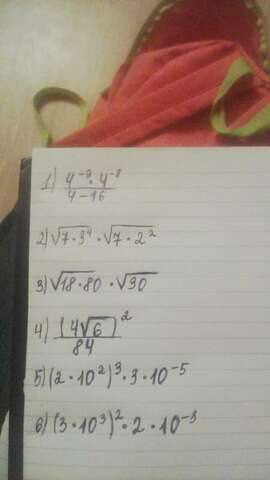 1) 4⁻⁹·4⁻⁸ / 4-16
2) √7·3⁴ · √7·2²
3) √18·80 · √30
4) (4√6)² / 84
5) (2·10²)³·3·10⁻⁵
6) (3·10³)²·2·10⁻³